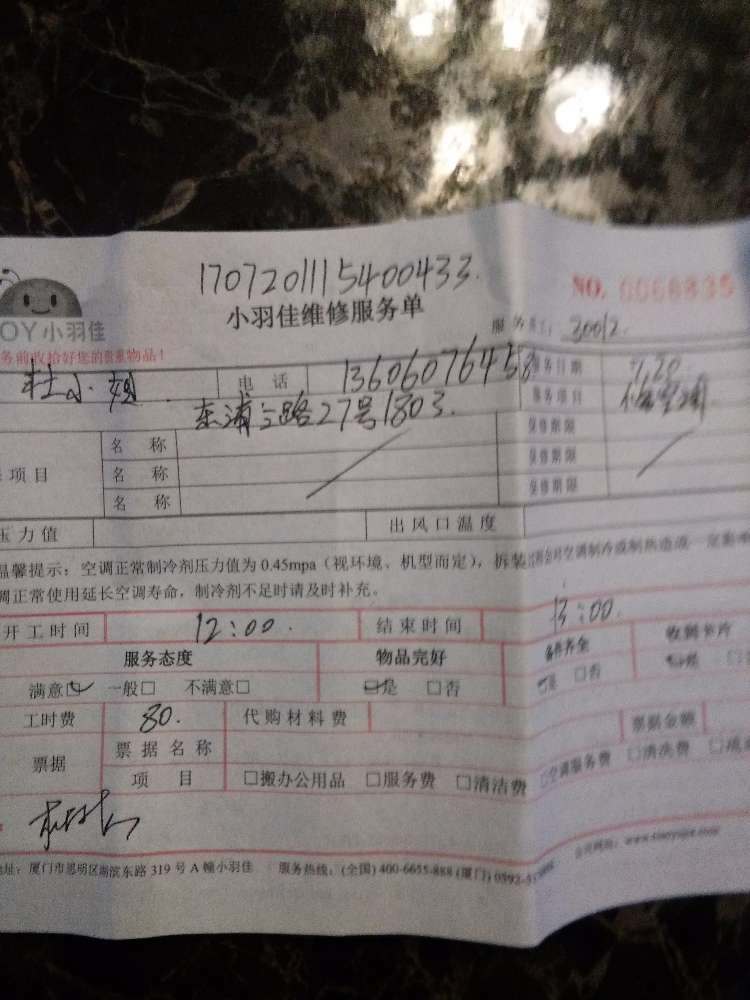 17072011115400433.
NO. 0066835
小羽佳维修服务单
OY小羽佳
服务员工: 30012.
务前收拾好您的贵重物品!
杜小姐 电话 13606076458 服务日期 7.20
东浦三路27号1803. 服务项目 修空调
名称 保修期限
项目 名称 保修期限
名称 保修期限
压力值 出风口温度
温馨提示:空调正常制冷剂压力值为0.45mpa(视环境、机型而定),拆装过程会对空调制冷或制热造成一定影响
调正常使用延长空调寿命,制冷剂不足时请及时补充。
开工时间 12:00. 结束时间 13:00.
服务态度 物品完好 备件齐全 收到卡片
满意□ 一般□ 不满意□ □是 □否 □是 □否 □是
工时费 80. 代购材料费 票据金额
票据 票据名称
项目 □搬办公用品 □服务费 □清洁费 □空调服务费 □清洗费
地址:厦门市思明区湖滨东路319号A幢小羽佳 服务热线:(全国)400-6655-888(厦门)0592-5
公司网站:www.xiaoyujia.com